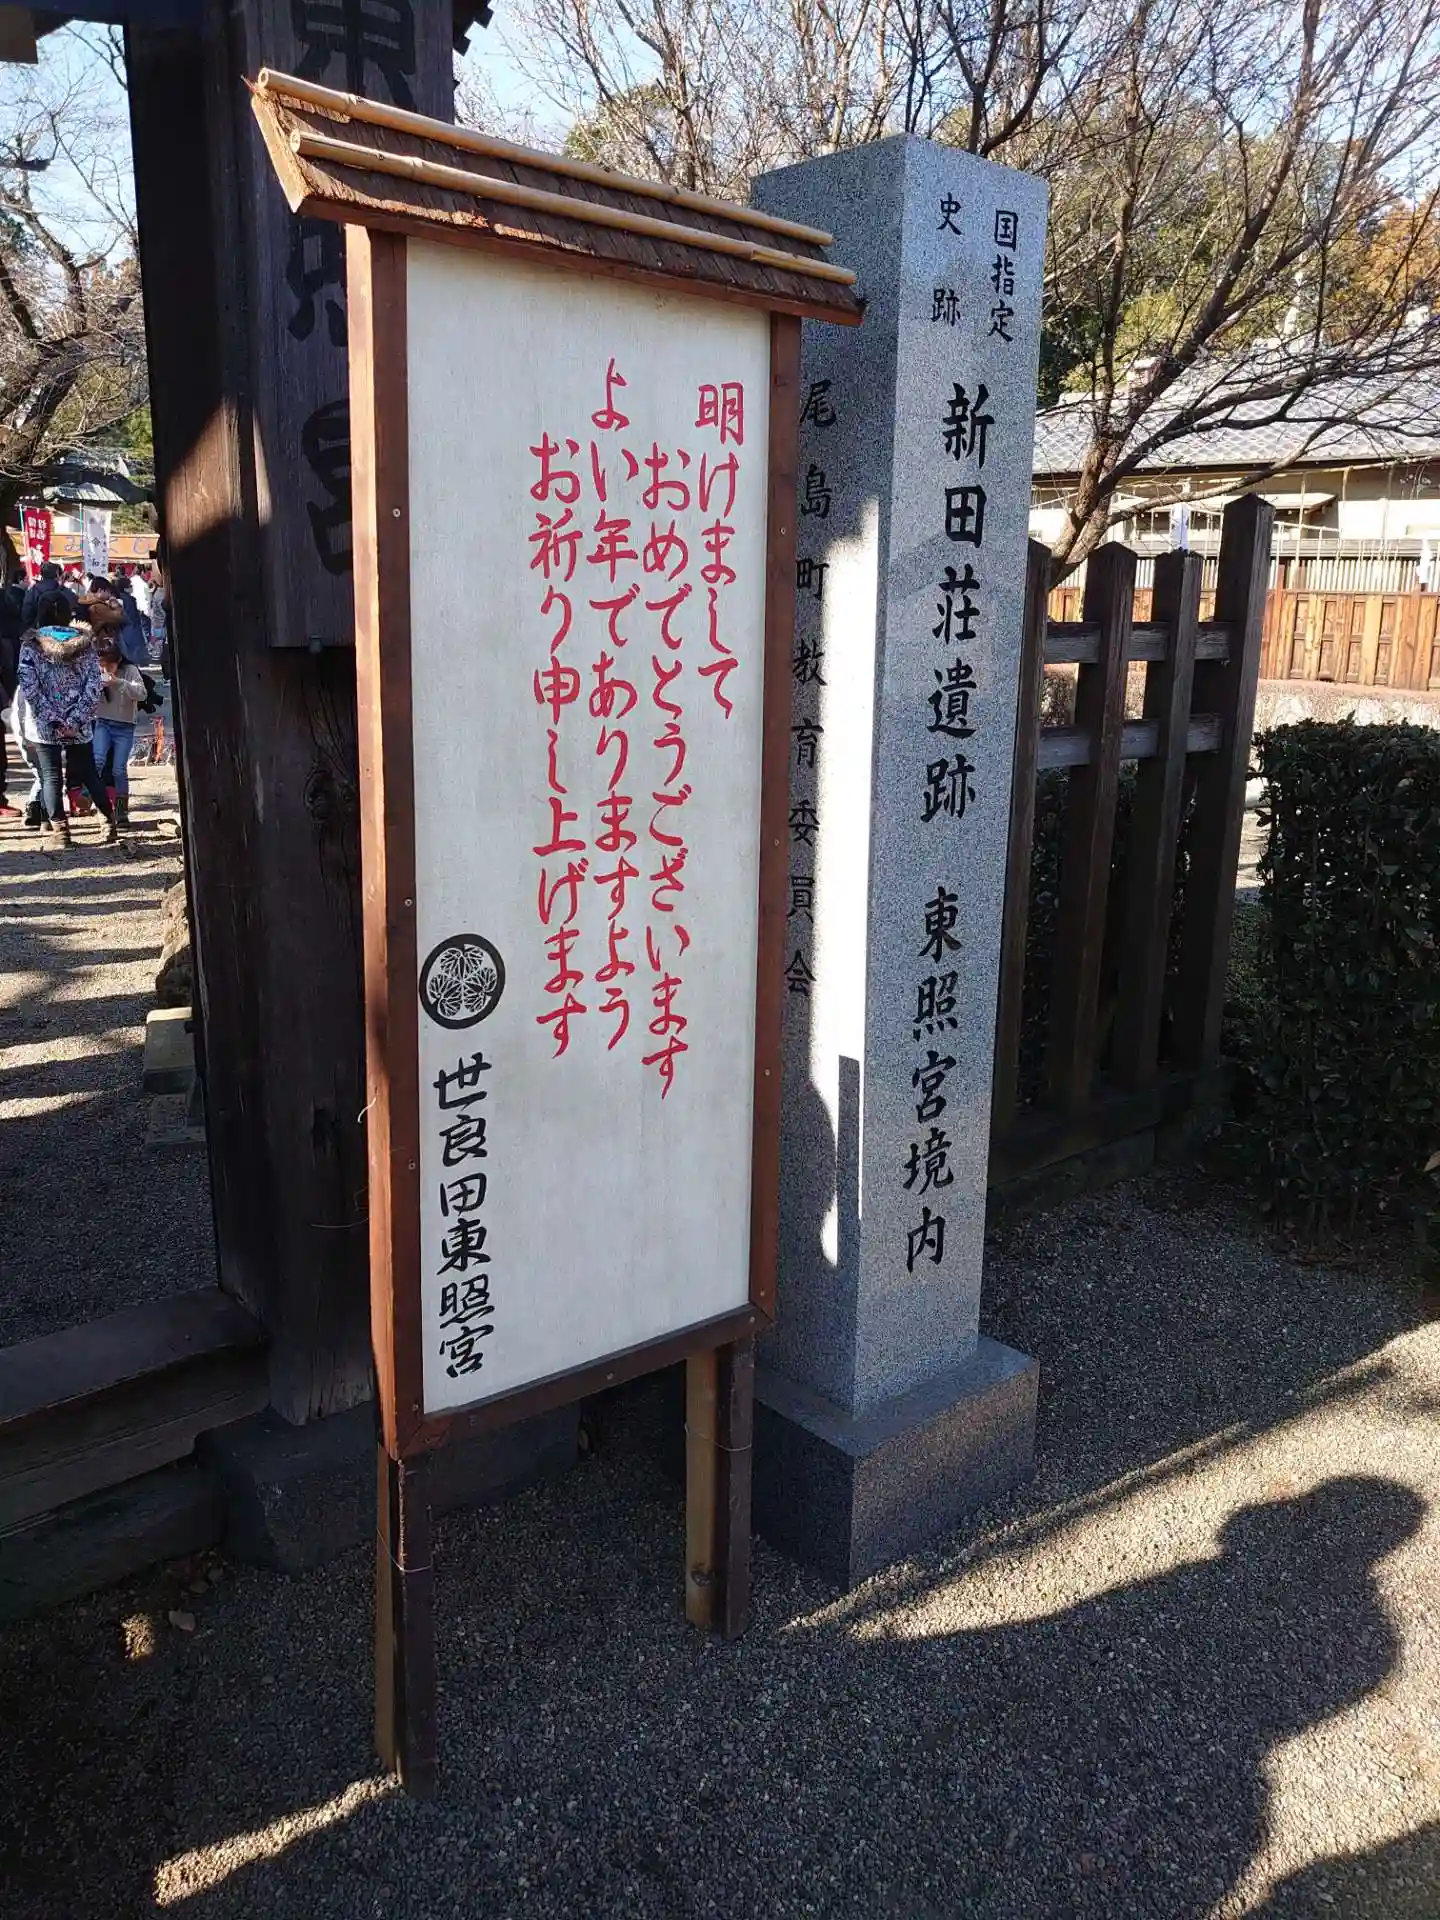 明けまして
おめでとうございます
よい年でありますよう
お祈り申し上げます
世良田東照宮
国指定
史跡
新田荘遺跡 東照宮境内
尾島町教育委員会
東照宮